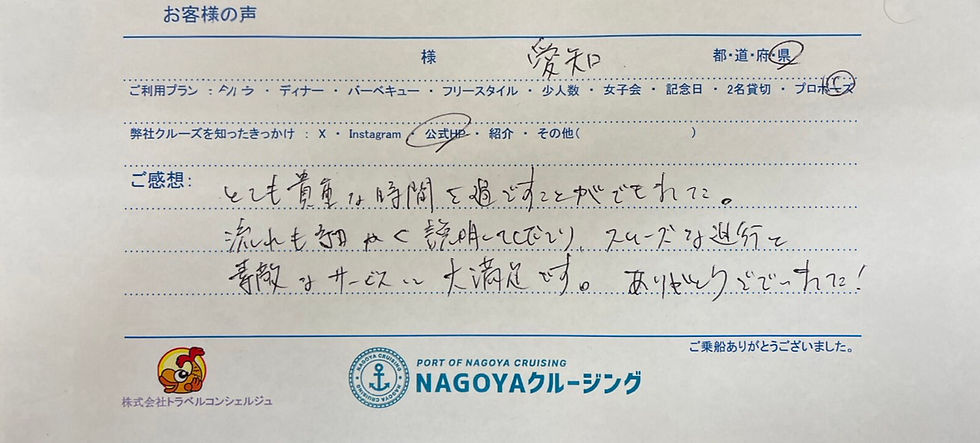 お客様の声
様 愛知 都・道・府・県
ご利用プラン : ランチ ・ ディナー ・ バーベキュー ・ フリースタイル ・ 少人数 ・ 女子会 ・ 記念日 ・ 2名貸切 ・ プロポーズ
弊社クルーズを知ったきっかけ : X ・ Instagram ・ 公式HP ・ 紹介 ・ その他( )
ご感想:
とても貴重な時間を過ごすことができました。
流れも細かく説明してくださり、スムーズな進行と
素敵なサービスに大満足です。 ありがとうございました!
ご乗船ありがとうございました。
株式会社トラベルコンシェルジュ
NAGOYA CRUISING
NAGOYA CRUISING
PORT OF NAGOYA CRUISING
NAGOYAクルージング